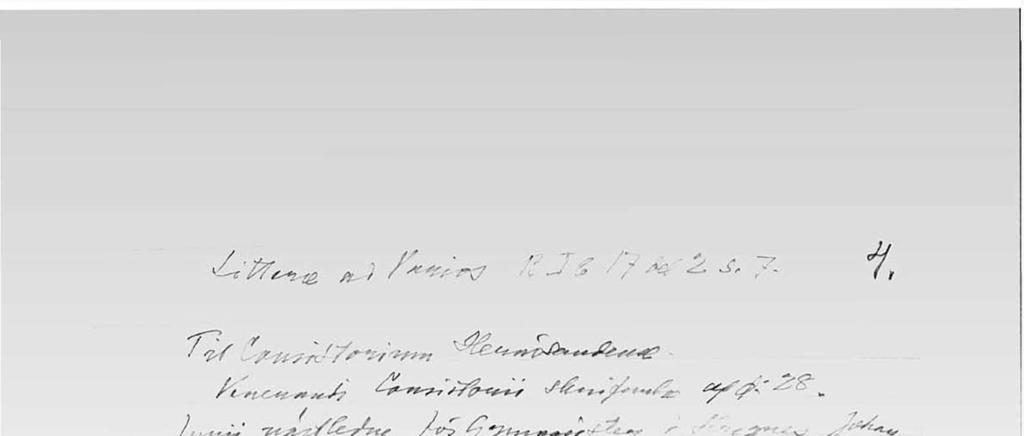 Litteræ ad Varios R I B 17 del 2 s. 7. 4.
Til Consistorium Hernösandense
Venerandi Consistorii skrifvelse af d: 28.
Junii nästledne för Gymnasisten Johan